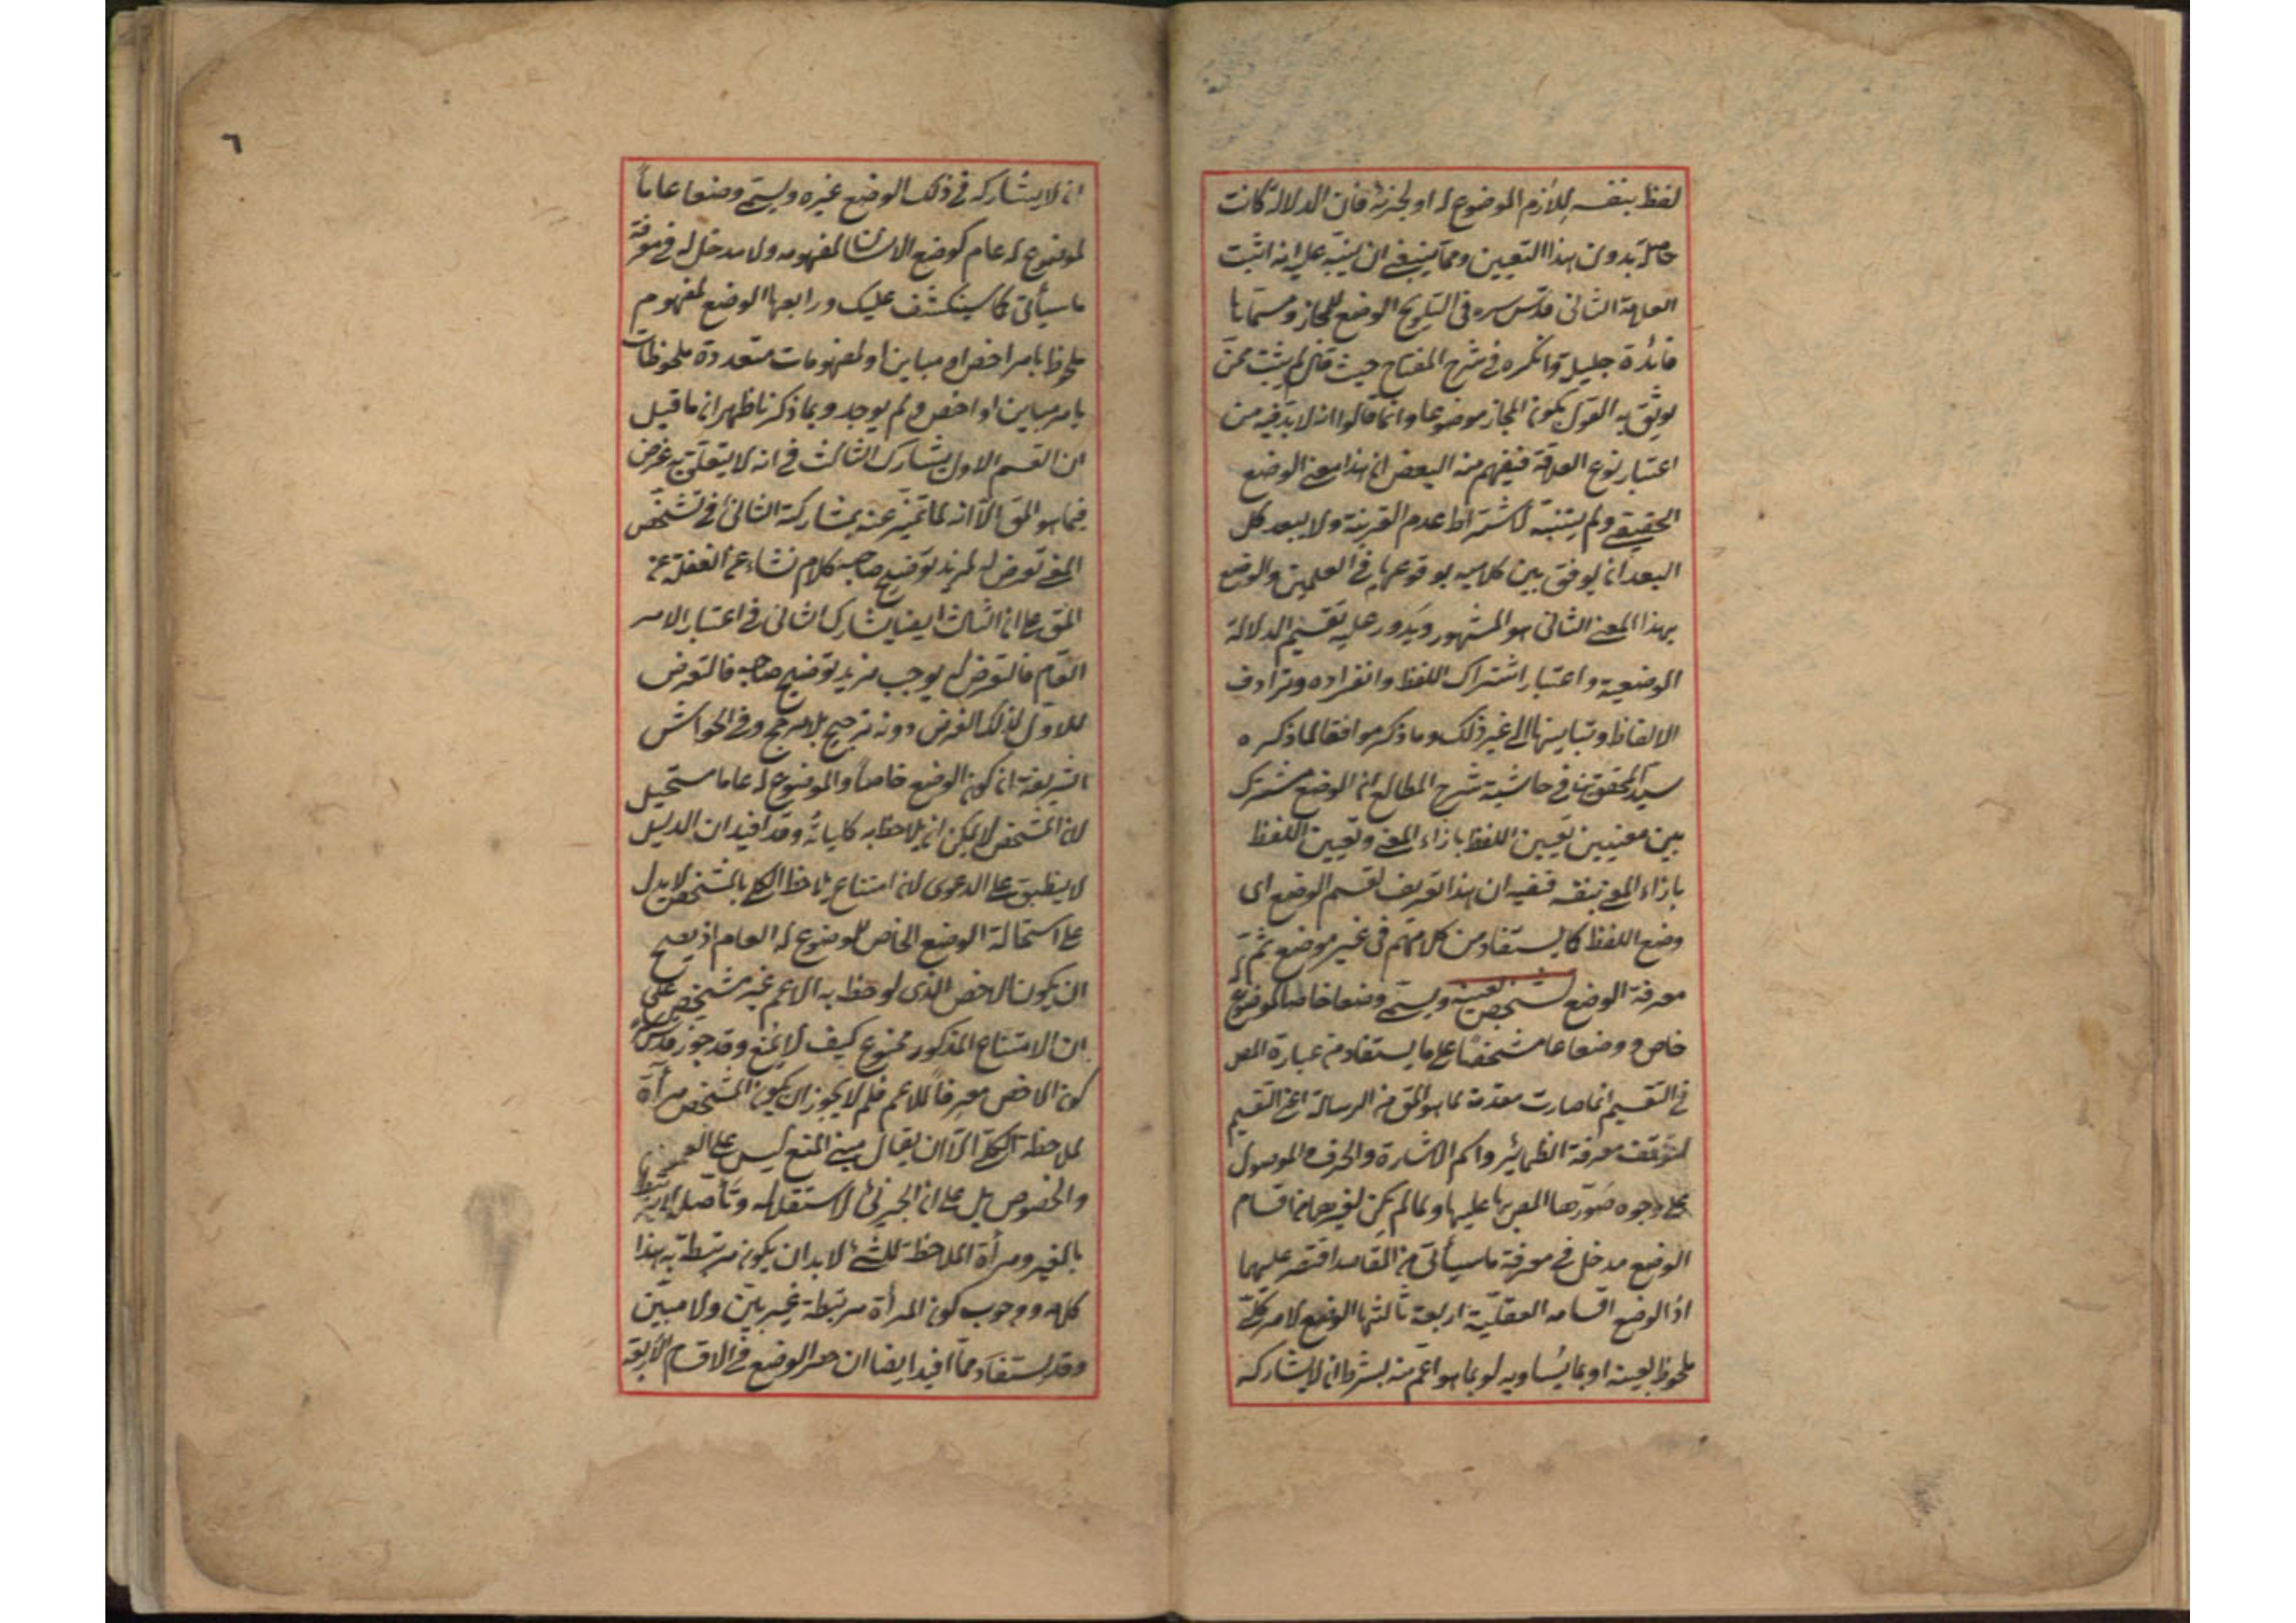 لفظ بنفسه للازم الموضوع له او لجزئه فان الدلالة كانت
حاصلة بدون هذا التعيين ومما ينبغي ان ينبه عليه انه اثبت
العلامة الثاني قدس سره في التلويح الوضع للمجاز وسماها
فائدة جليلة وانكره في شرح المفتاح حيث قال لم يثبت ممن
يوثق به القول بكون المجاز موضوعا وانما قالوا انه لا بد فيه من
اعتبار نوع العلاقة فيفهم منه البعض ان هذا معنى الوضع
الحقيقي ولم يتنبه لاشتراط عدم القرينة ولا يبعد كل
البعد ان يوفق بين كلاميه بوقوعهما في العلمين والوضع
بهذا المعنى الثاني هو المشهور ويدور عليه تقسيم الدلالة
الوضعية واعتبار اشتراك اللفظ وانفراده وترادف
الالفاظ وتباينها الى غير ذلك وما ذكر موافقا لما ذكره
سيد المحققين في حاشية شرح المطالع ان الوضع مشترك
بين معنيين تعيين اللفظ بازاء المعنى وتعيين اللفظ
بازاء المعنى بنفسه ففيه ان هذا تعريف لقسم الوضع اى
وضع اللفظ كما يستفاد من كلامهم في غير موضع ثم
معرفة الوضع لمشخص بعينه ويسمى وضعا خاصا لموضوع
خاص ووضعا عاما مشخصا على ما يستفاد من عبارة المص
في التقسيم انما صارت مقدمة لما هو المق من الرسالة اعنى التقسيم
لتوقف معرفة الضمائر واسم الاشارة والحرف والموصول
على وجوه صورها المص بها عليها ولما لم يكن لغيرهما من اقسام
الوضع مدخل في معرفة ما سيأتى من المقاصد اقتصر عليهما
اذ الوضع اقسامه العقلية اربعة ثالثها الوضع لامر كلى
ملحوظ بعينه او بما يساويه او بما هو اعم منه بشرط ان لا يشاركه
٦
ان لا يشاركه في ذلك الوضع غيره ويسمى وضعا عاما
لموضوع له عام كوضع الانسان لمفهومه ولا مدخل له في معرفة
ما سيأتى كما سينكشف عليك ورابعها الوضع لمفهوم
ملحوظ بامر اخص او مباين او لمفهومات متعددة ملحوظات
بامر مباين او اخص ولم يوجد وبما ذكرنا ظهر ان ما قيل
ان القسم الاول يشارك الثالث في انه لا يتعلق به غرض
فيما هو المق الا انه لما تميز عنه بمشاركة الثانى في تشخص
المعنى تعرض له لمزيد توضيح صاحبه كلام نشاء عن الغفلة عن
المق على ان الثالث ايضا يشارك الثاني في اعتبار الامر
العام فالتعرض له يوجب مزيد توضيح صاحبه فالتعرض
للاول لذلك الغرض دونه ترجيح بلا مرجح وفي الحواشى
الشريفة ان كون الوضع خاصا والموضوع له عاما مستحيل
لان المشخص لا يمكن ان يلاحظ به كلياته وقد افيد ان الدليل
لا ينطبق على الدعوى لان امتناع ملاحظة الكلى بالمشخص لا يدل
على استحالة الوضع الخاص للموضوع له العام اذ يصح
ان يكون الاخص الذى لوحظ به الاعم غير مشخص على
ان الامتناع المذكور ممنوع كيف لا يمنع وقد جوز قدس سره
كون الاخص معرفا للاعم فلم لا يجوز ان يكون المشخص مرأة
لملاحظة الكلى الا ان يقال مبنى المنع ليس على العموم
والخصوص بل على ان الجزئى لاستقلاله وتأصله لا يرتبط
بالغير ومرأة الملاحظة للشئ لا بد ان يكون مرتبطة به هذا
كلامه ووجوب كون المرأة مرتبطة غير بين ولا مبين
وقد يستفاد مما افيد ايضا ان حصر الوضع في الاقسام الاربعة